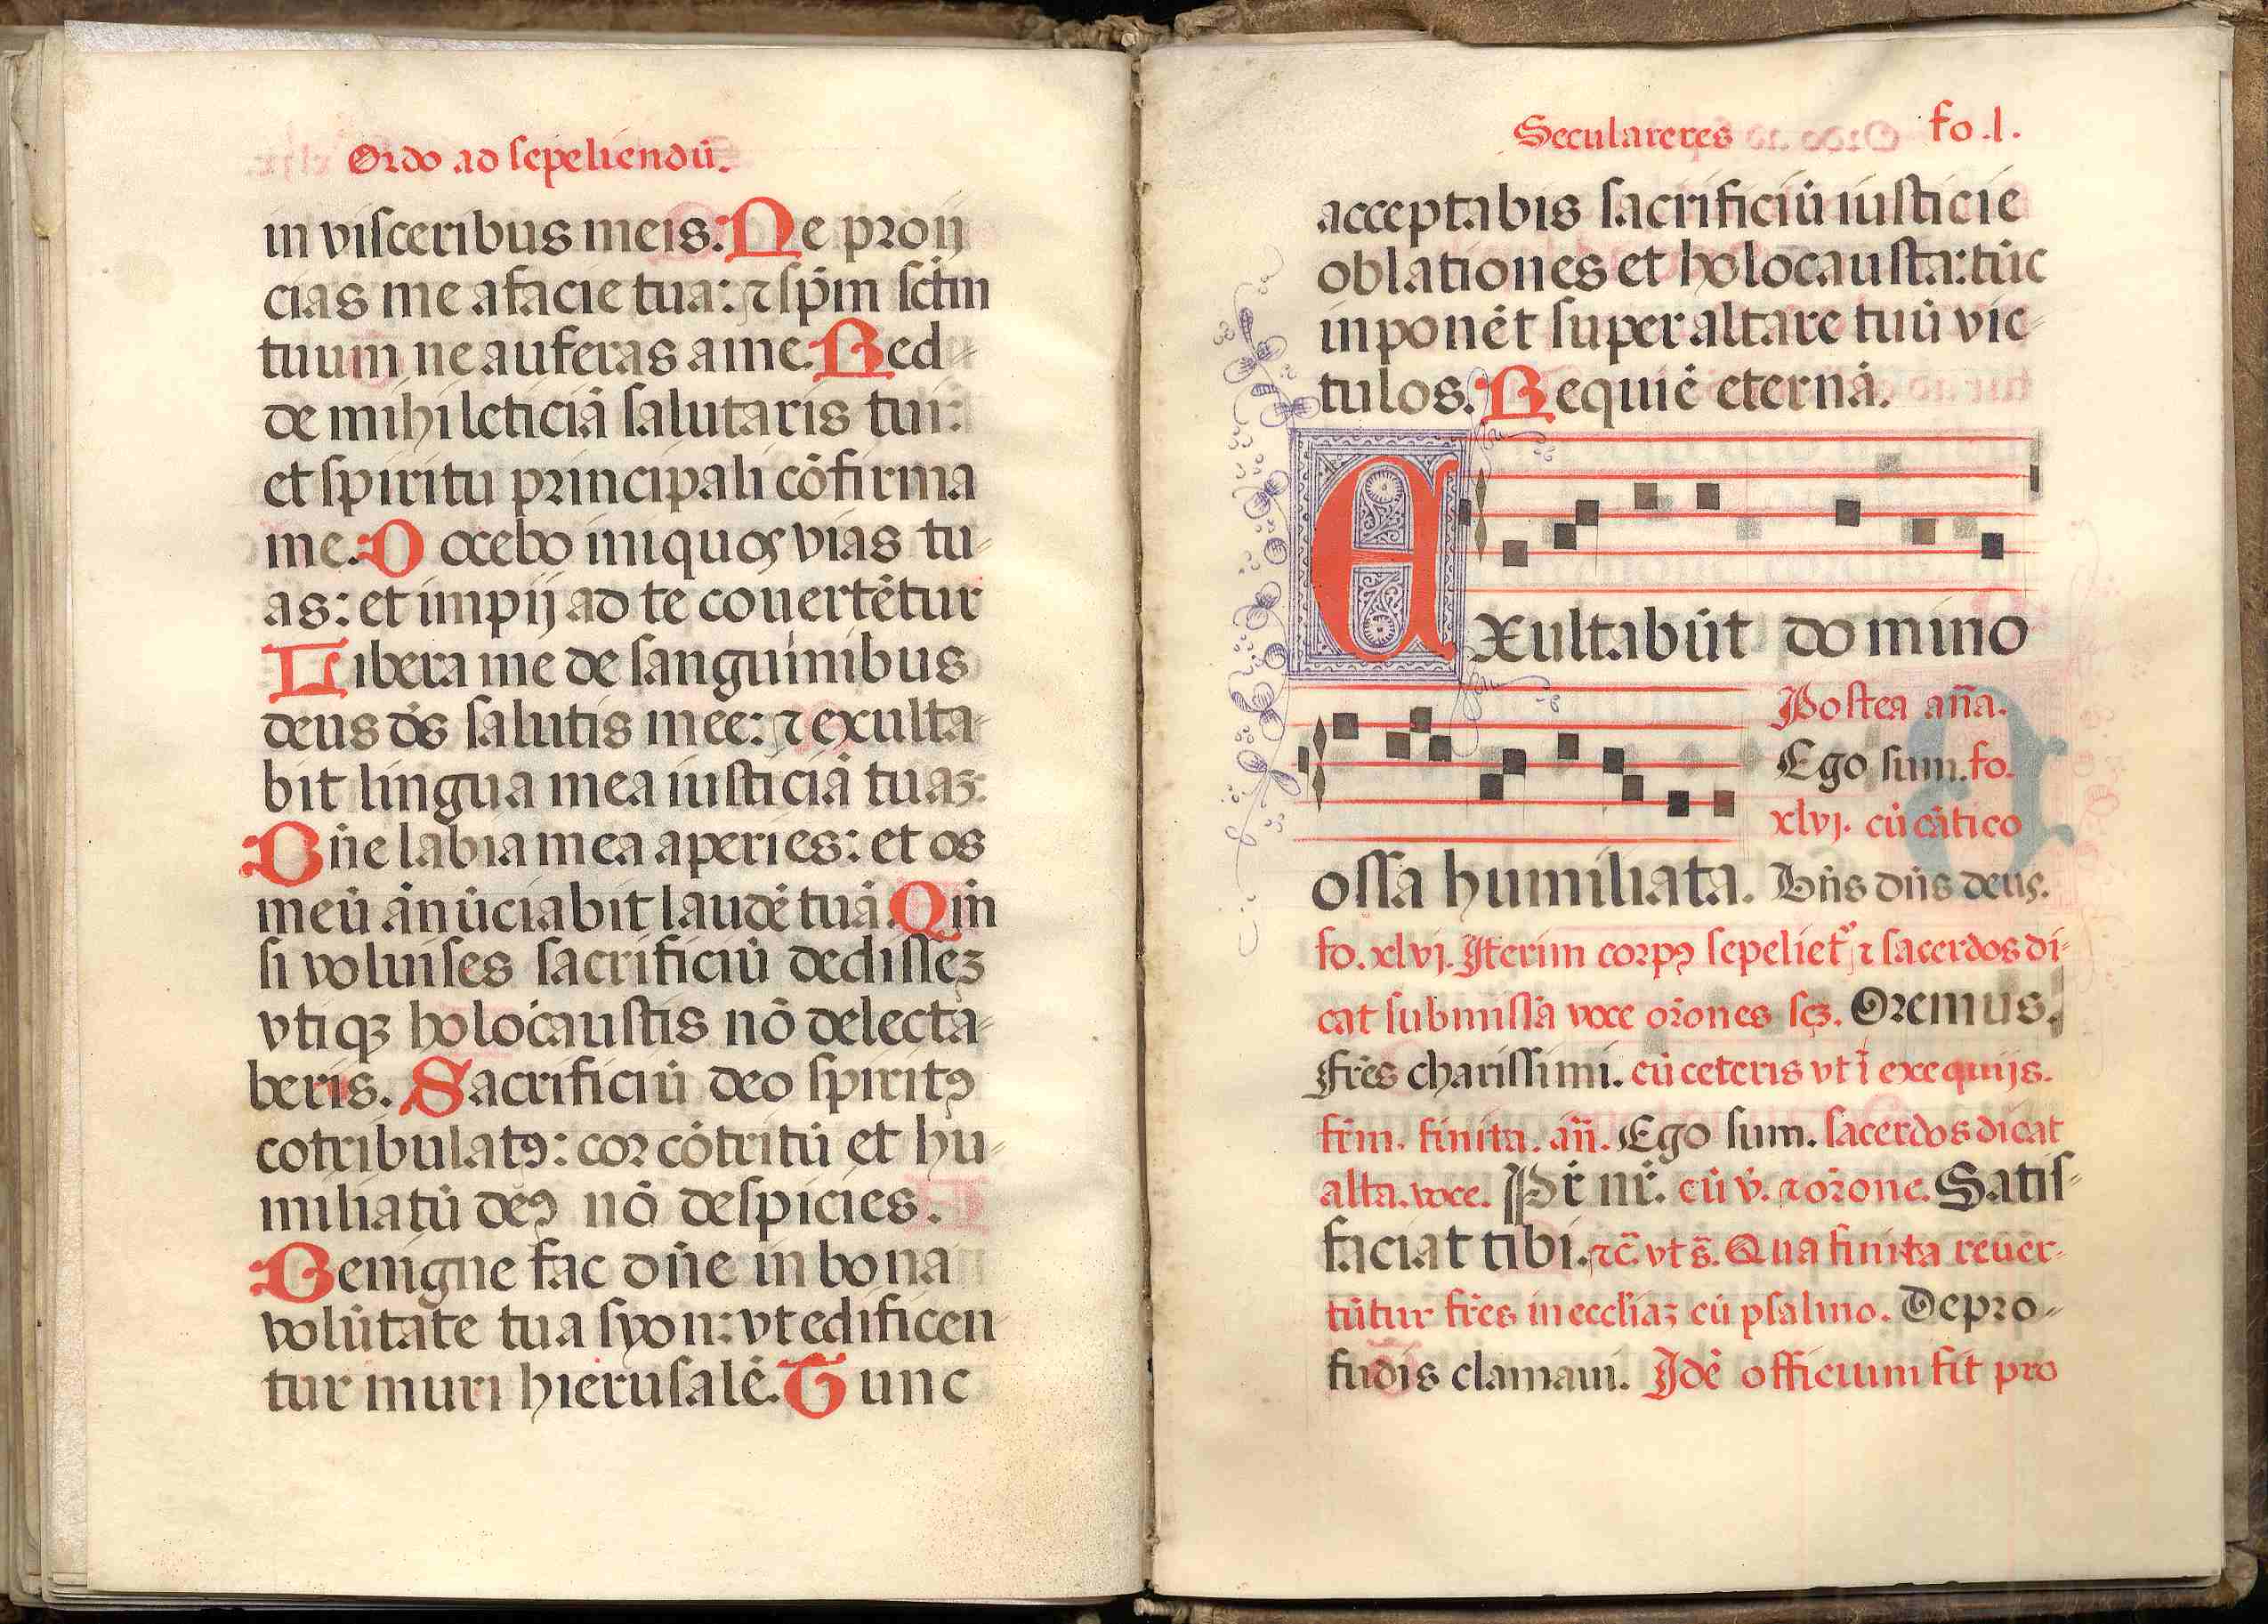 Ordo ad sepeliendū.
in visceribus meis. Ne proij
cias me a facie tua: ⁊ sp̄m sctm̄
tuum ne auferas a me. Red-
de mihi leticiā salutaris tui:
et spiritu principali cōfirma
me. Docebo iniquos vias tu-
as: et impij ad te conuertētur
Libera me de sanguinibus
deus de᷒ salutis mee: ⁊ exulta-
bit lingua mea iusticiā tuaꝫ.
Dn̄e labia mea aperies: et os
meū ānūciabit laudē tuā. Qm̄
si voluises sacrificiū dedisseꝫ
vtiqꝫ holocaustis nō delecta-
beris. Sacrificiū deo spiritꝰ
cotribulatꝰ: cor cōtritū et hu-
miliatū deꝰ nō despicies.
Benigne fac dn̄e in bona
volūtate tua syon: vt edificen-
tur muri hierusalē. Tunc
Seculareres fo. l.
acceptabis sacrificiū iusticie
oblationes et holocausta: tūc
inponēt super altare tuū vic-
tulos. Requiē eternā.
Exultabūt domino
Postea an̄a.
Ego sum. fo.
xlvj. cū cātico
ossa humiliata. Bn̄s dn̄s deus.
fo. xlvj. Iterim corpꝰ sepeliet᷑ ⁊ sacerdos di-
cat submissā voce or̄ones scꝫ. Oremus.
Frēs charissimi. cū ceteris vt ī exequijs.
frm̄. finita. an̄. Ego sum. sacerdos dicat
alta. voce. Pr̄ nr̄. cū v̄. ⁊ or̄one. Satis-
faciat tibi. ⁊c̄. vt s̄. Qua finita reuer-
tūtur frēs in eccl̄iaꝫ cū psalmo. De pro-
fūdis clamaui. Idē officium fit pro